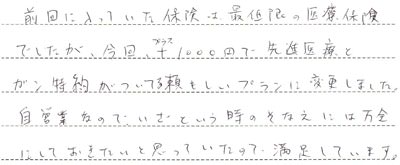 前回に入っていた保険は最低限の医療保険
でしたが、今回、＋プラス1000円で先進医療と
ガン特約がついてる頼もしいプランに変更しました。
自営業なのでいざという時のそなえには万全
にしておきたいと思っていたので満足しています。